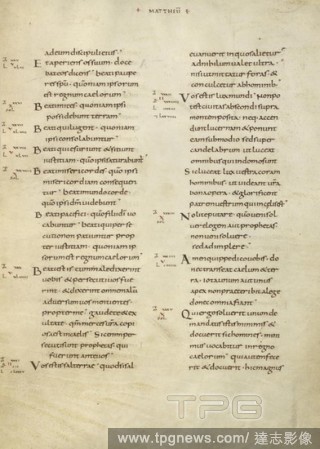 MATTHEUM
ad eum discipuli eius.
Et aperiens os suum doce
bat eos dicens beati paupe
res spu. quoniam ipsorum
est regnum caelorum.
Beati mites quoniam ipsi
possidebunt terram.
Beati qui lugent quoniam
ipsi consolabuntur.
Beati qui esuriunt & sitiunt
iustitiam quo ipsi saturabunt
Beati misericordes quo ipsi
misericordiam consequen
tur. beati mundo corde
quo ipsi dm videbunt.
Beati pacifici quo filii di vo
cabuntur beati qui perse
cutionem patiuntur prop
ter iustitiam quoniam ip
sorum est regnum caelorum
Beati estis cum maledixerint
vobis & persecuti vos fue
rint & dixerint omne malum
adversum vos mentientes
propter me gaudete & ex
ultate qm merces vra copi
osa est in caelis Sic enim per
secuti sunt prophetas qui
fuerunt ante vos
Vos estis sal terrae quod si sal
evanuerit in quo salietur
ad nihilum valet ultra
nisi ut mittatur foras &
conculcetur ab hominib;
Vos estis lux mundi Non po
test civitas abscondi supra
montem posita neq; accen
dunt lucernam & ponunt
eam sub modio sed super
candelabrum ut luceat
omnibus qui in domo sunt
Sic luceat lux vestra coram
hominibus ut videant vra
bona opera & glorificent
patrem vestrum qui in caelis est
Nolite putare quo veni sol
vere legem aut prophetas
non veni solvere
sed adimplere
Amen quippe dico vobis do
nec transeat caelum & ter
ra iota unum aut unus
apex non praeteribit a lege
donec omnia fiant
Qui ergo solverit unum de
mandatis istis minimis &
docuerit sic homines mini
mus vocabitur in regno
caelorum qui autem fece
rit & docuerit hic magnus
TPG
www.tpgnews.com / 達志影像